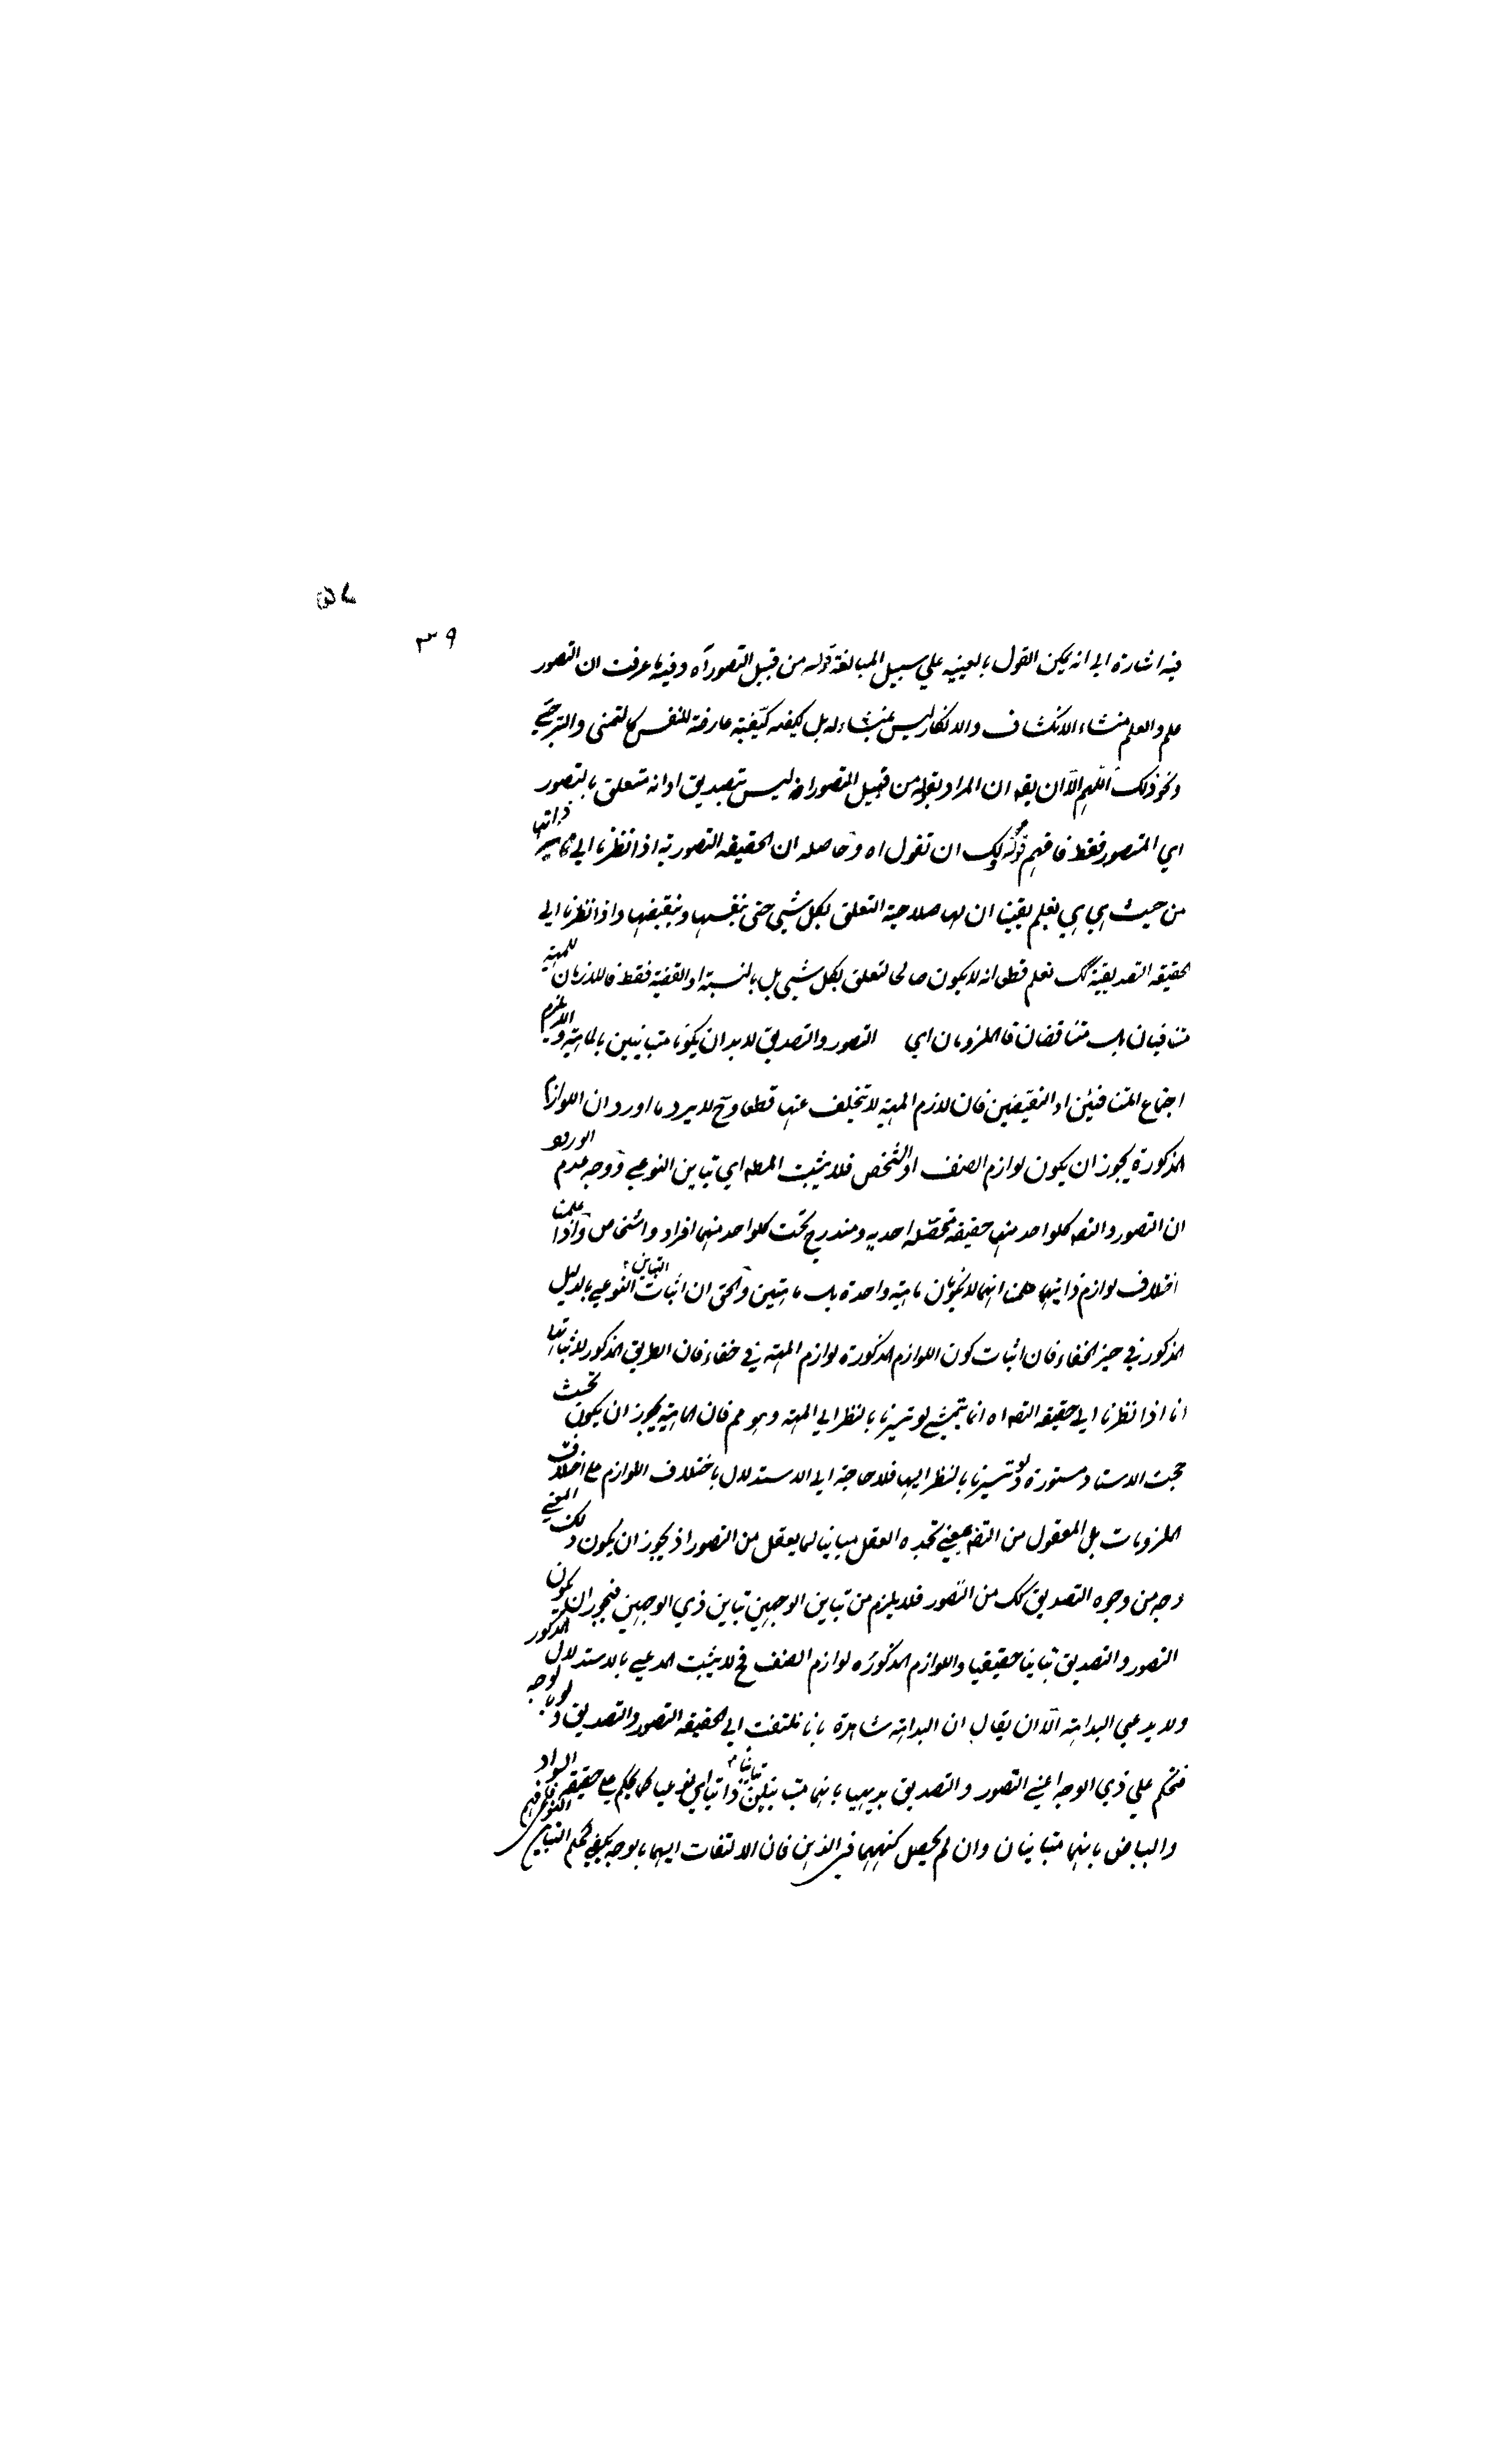 ٣٩
فيه اشارة الى انه يمكن القول بالعينيه علي سبيل المبالغة قوله من قبيل التصور آه وفيه ما عرفت ان التصور
علم والعلم منشاء الانكشاف والانكار ليس بمنشاء له بل كيفيته عارضة للنفس كالتمنى والترجي
ونحو ذلك اللهم الا ان يقه ان المراد بقوله من قبيل التصور انه ليس بتصديق او انه متعلق بالتصور
اي المتصور فقط فافهم قوله ولك ان تقول اه وحاصله ان الحقيقه التصورية اذا نظرنا الي ذاتها
من حيث هي هي نعلم يقينا ان لها صلاحية التعلق بكل شيى حتى بنفسها ونقيضها واذا نظرنا الي
الحقيقه التصديقية كك نعلم قطعا انه لا يكون صالحا لتعلق بكل شيى بل بالنسبة او القضية فقط فاللازمان للمهية
متنافيان بل متناقضان فالملزومان اي التصور والتصديق لابد ان يكونا متباينين بالماهية والا يلزم
اجتماع المتنافيين او النقيضين فان لازم المهية لا تتخلف عنها قطعا وح لا يرد ما اورد ان اللوازم
المذكورة يجوز ان يكون لوازم الصنف او الشخص فلا يثبت المطه اي تباين النوعي ووجه عدم الورود
ان التصور والتصه كلواحد منها حقيقة محصلة احديه ومندرج تحت كلواحد منهما افراد واشخاص واذا علمت
اختلاف لوازم ذاتيهما علمت انهما لا تكونان ماهية واحدة بل ماهيتين والحق ان اثبات التباين النوعي بالدليل
المذكور في حيز الخفاء فان اثبات كون اللوازم المذكورة لوازم المهية في خفاء فان الطريق المذكور لاثباتها
انا اذا نظرنا الي حقيقه التصه اه انما يتمشى لو تميزنا بالنظر الي المهية وهو مم فان الماهية يجوز ان يكون تحت
حجب الاستار مستورة ولو تميزنا بالنظر اليها فلا حاجة الي الاستدلال باختلاف اللوازم على اختلاف
الملزومات بل المعقول من التصه معنى تجده العقل مباينا لما يعقل من التصور اذ يجوز ان يكون ذلك المعني
وجه من وجوه التصديق كك من التصور فلا يلزم من تباين الوجهين تباين ذي الوجهين فيجوز ان يكون
التصور والتصديق تباينا حقيقيا واللوازم المذكوره لوازم الصنف فح لا يثبت المدعي بالاستدلال المذكور
ولا يدعي البداهة الا ان يقال ان البداهة شاهدة بانا نلتفت الي الحقيقه التصور والتصديق ولو بالوجه
فنحكم علي ذي الوجه اعني التصور والتصديق بديهيا بانهما متباينين تباينا ذاتيا اي نوعيا كما يحكم على حقيقة السواد
والبياض بانهما متباينان وان لم يحصل كنههما في الذهن فان الالتفات اليهما بالوجه يكفي لحكم التباين النوعي فافهم